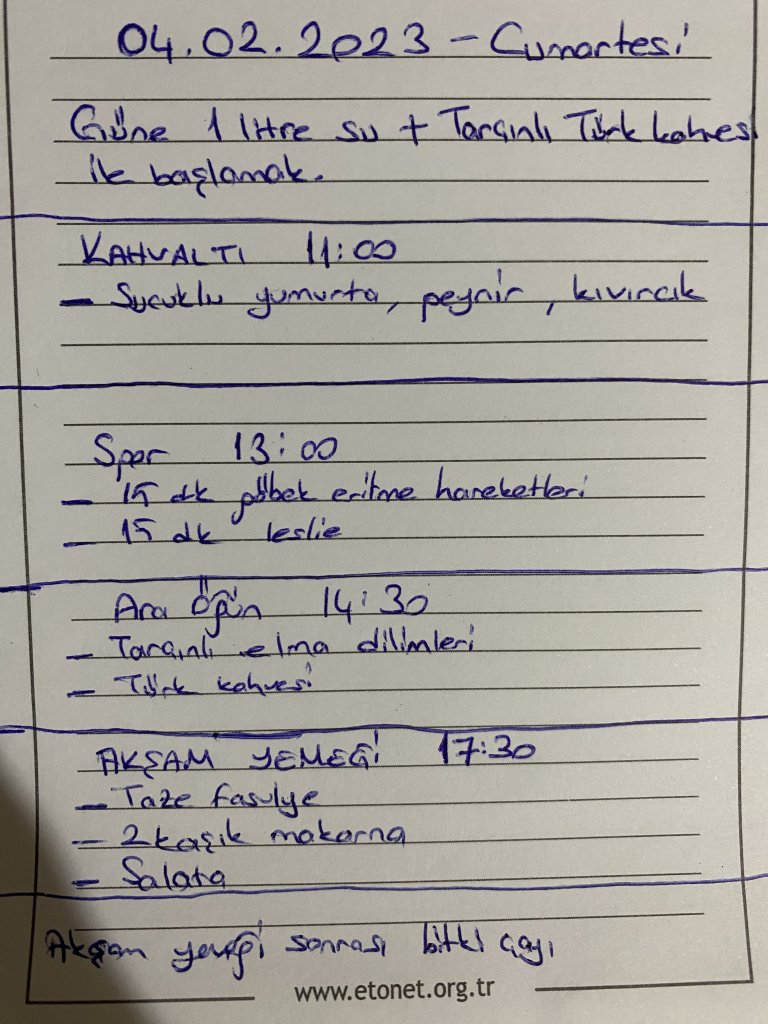 04.02.2023 - Cumartesi
Güne 1 litre su + Tarçınlı Türk kahvesi
ile başlamak.
KAHVALTI 11:00
- Sucuklu yumurta, peynir, kıvırcık
Spor 13:00
- 15 dk göbek eritme hareketleri
- 15 dk leslie
Ara Öğün 14:30
- Tarçınlı elma dilimleri
- Türk kahvesi
AKŞAM YEMEĞİ 17:30
- Taze fasulye
- 2 kaşık makarna
- Salata
Akşam yemeği sonrası bitki çayı
www.etonet.org.tr